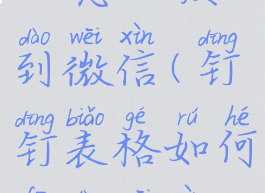 dào wēi xìn dīng
到微信(钉
dīng biǎo gé rú hé
钉表格如何